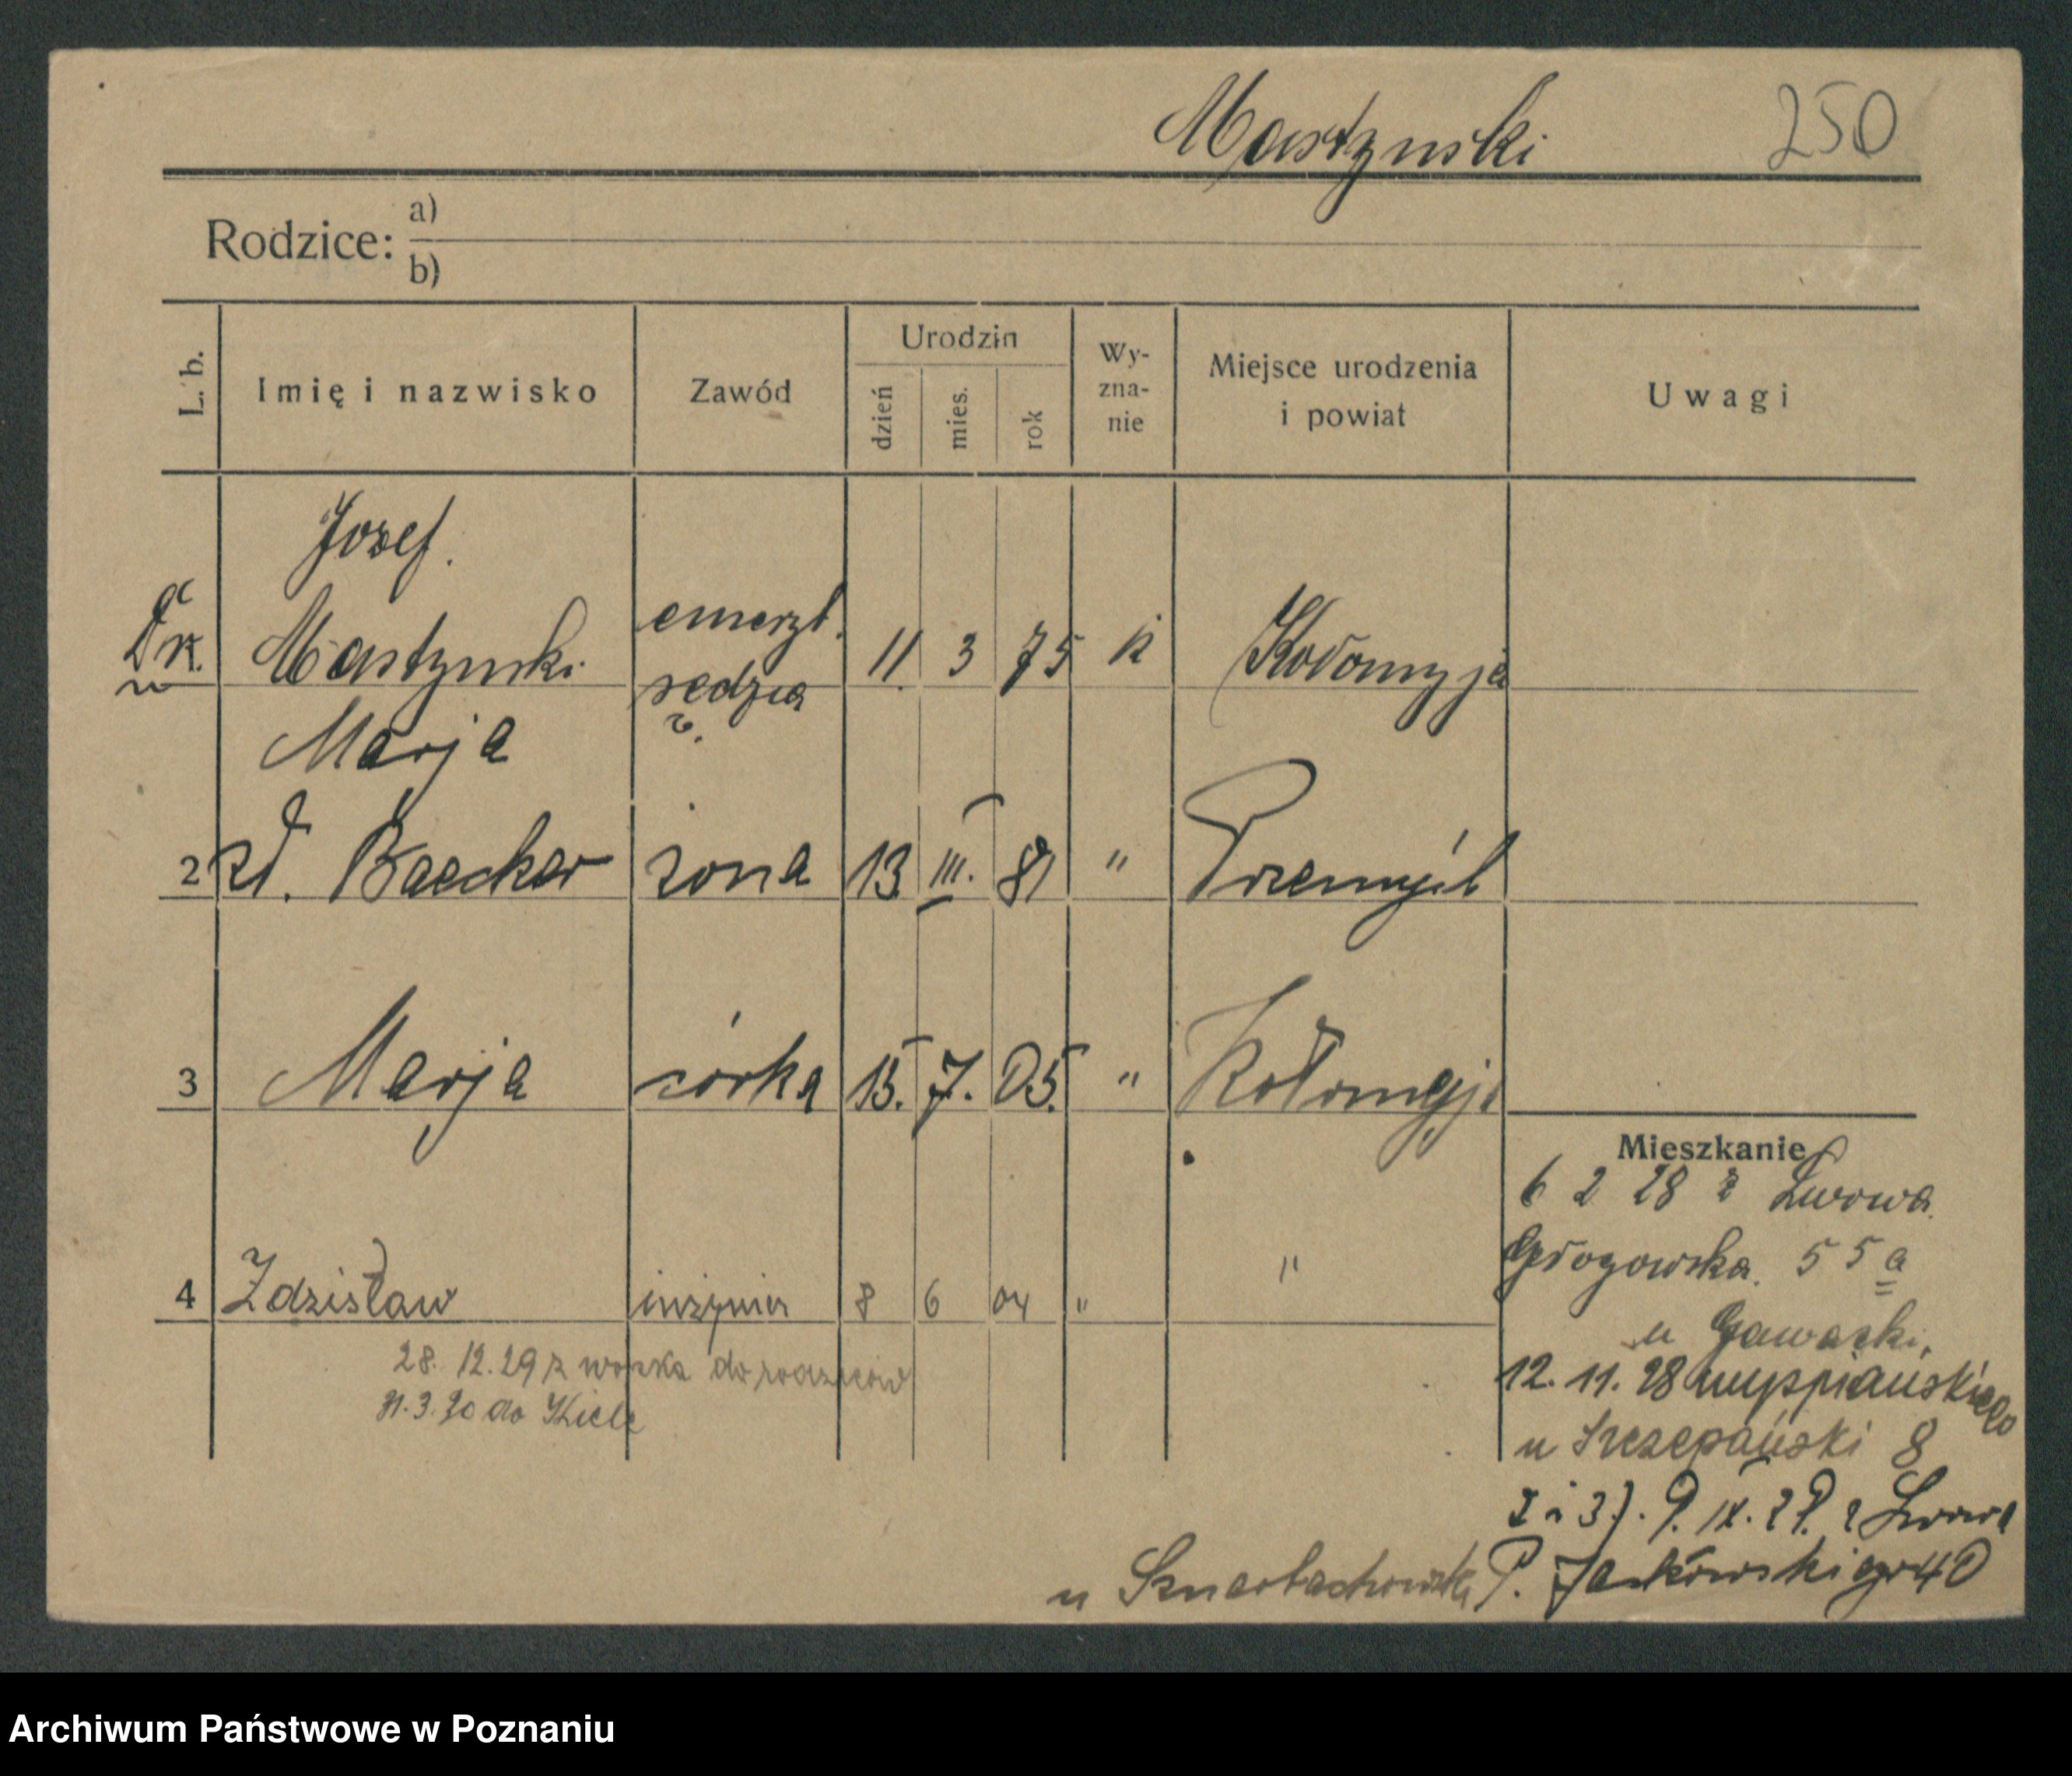 Mastynski 250
Rodzice: a)
b)
L. b. Imię i nazwisko Zawód Urodzin dzień mies. rok Wy-zna-nie Miejsce urodzenia i powiat Uwagi
Józef.
Dr. Mastynski emeryt. 11 3 75 k Kołomyja
sędzia
Marja
2 zd. Baecker żona 13 III. 81 " Przemyśl
3 Marja córka 15. 7. 05. " Kołomyja
4 Zdzisław inżynier 8 6 04 " "
28. 12. 29 z wojska do rodziców
31. 3. 30 do Kielc
Mieszkanie
6 2 28 z Lwowa
Głogowska. 55a
u Gawacki,
12. 11. 28 Wyspiańskiego
u Szczepański 8
2 i 3). 9. IX. 29. z Lwowa
P. Jackowskiego 40
u
Archiwum Państwowe w Poznaniu